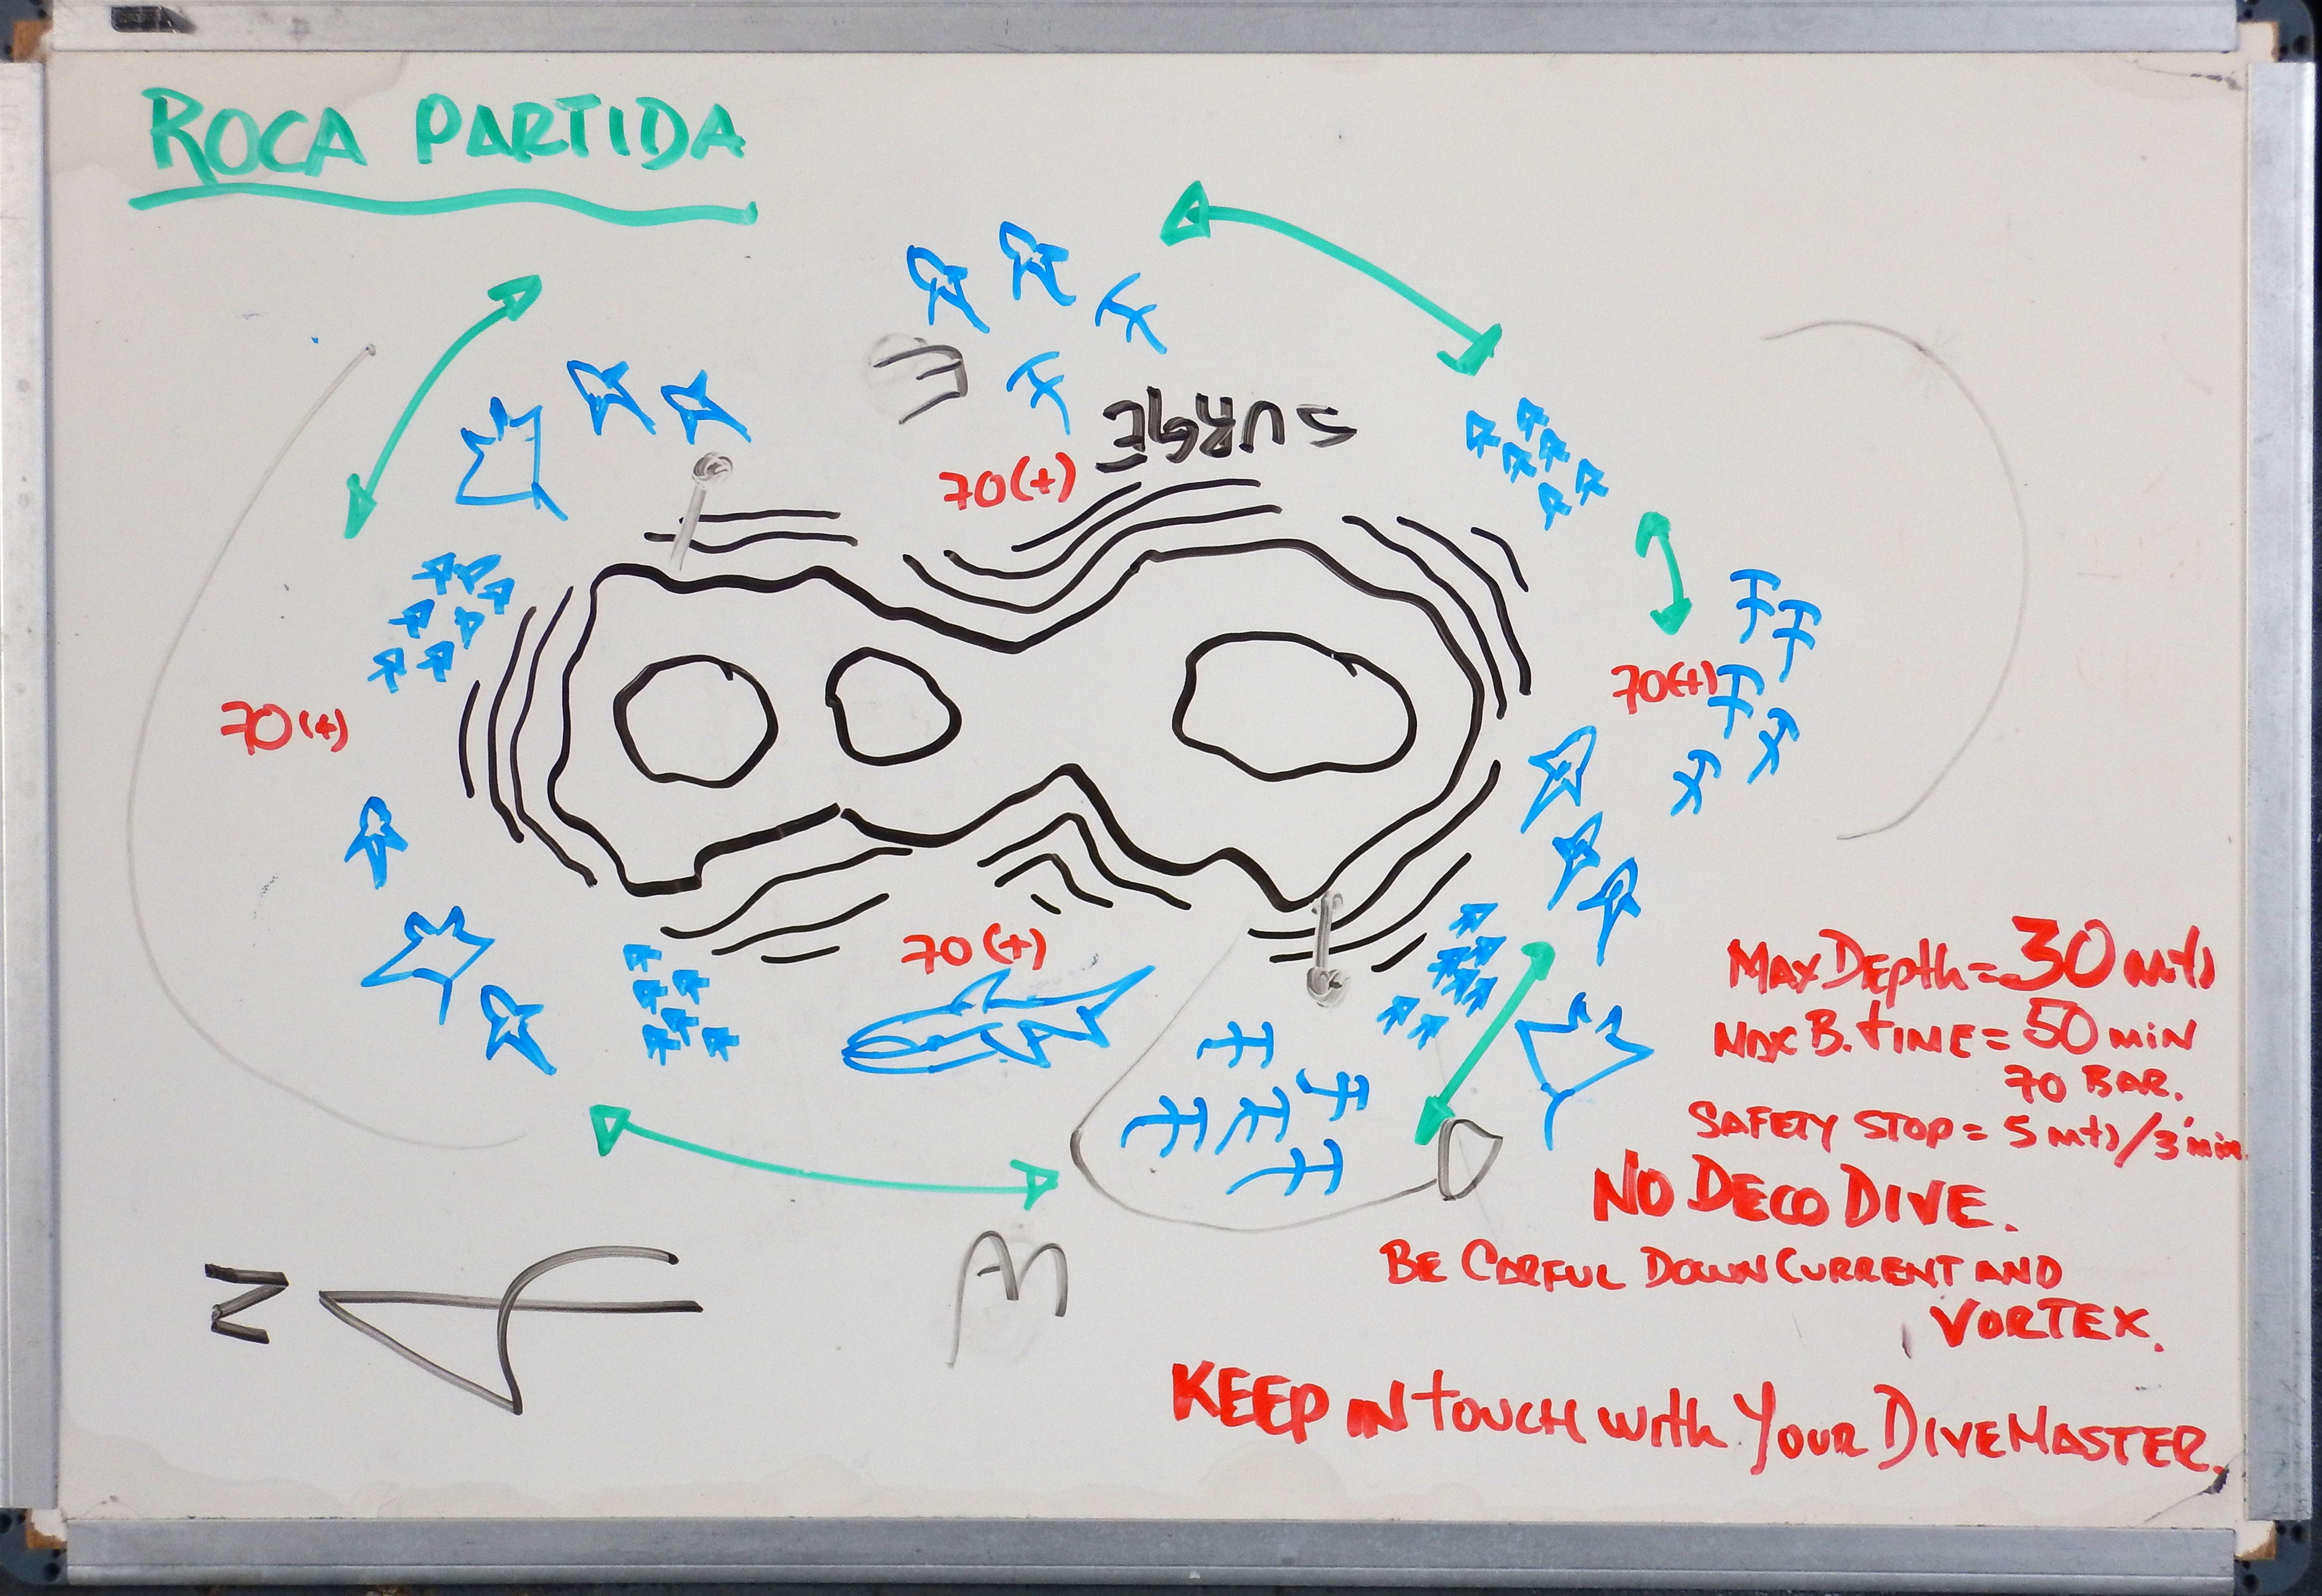 ROCA PARTIDA
E
SURGE
70(+)
70(+)
70(+)
70(+)
MAX DEPTH = 30 mts
MAX B. TIME = 50 MIN
70 BAR.
SAFETY STOP = 5 mts/3' min.
NO DECO DIVE.
BE CARFUL DOWN CURRENT AND
VORTEX.
N
W
KEEP IN TOUCH WITH YOUR DIVEMASTER.